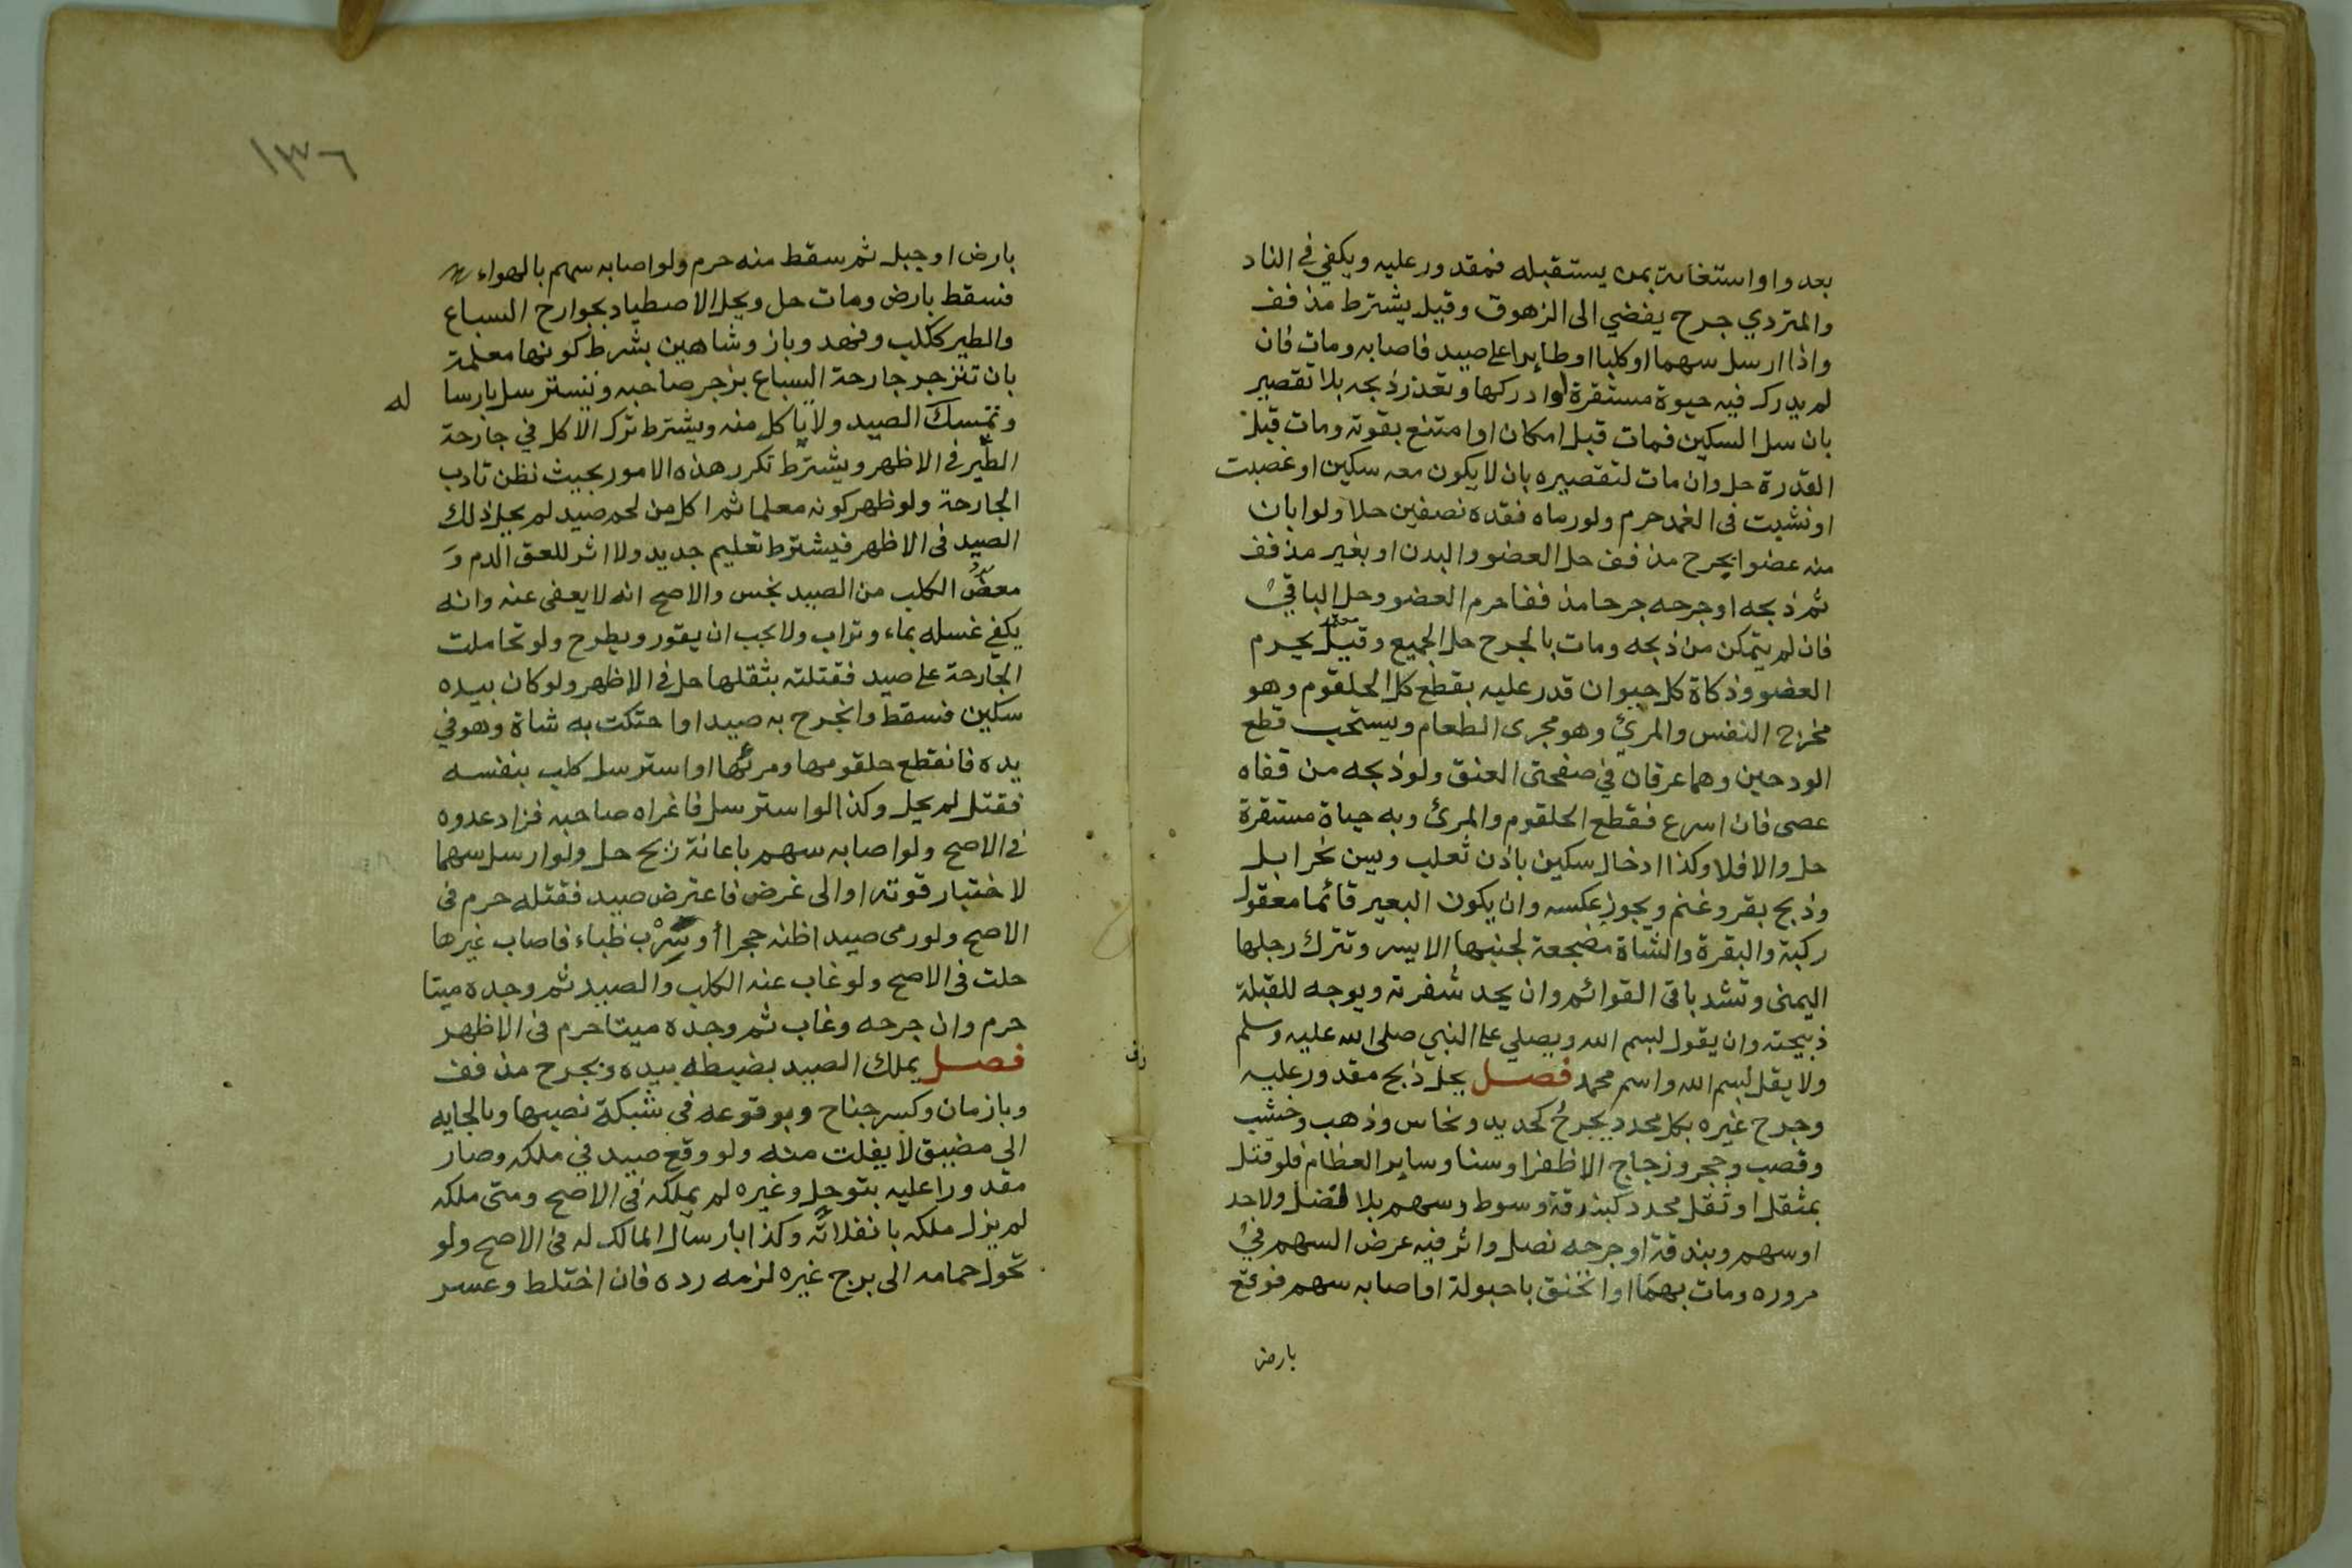 بعدو او استغاثة بمن يستقبله فمقدور عليه ويكفي في الناد
والمتردي جرح يفضي الى الزهوق وقيل يشترط مذفف
واذا ارسل سهما او كلبا او طايرا على صيد فاصابه ومات فان
لم يدرك فيه حيوة مستقرة او ادركها وتعذر ذبحه بلا تقصير
بان سل السكين فمات قبل امكان او امتنع بقوته ومات قبل
القدرة حل وان مات لتقصيره بان لا يكون معه سكين او غصبت
او نشبت في الغمد حرم ولو رماه فقده نصفين حلا ولو ابان
منه عضوا بجرح مذفف حل العضو والبدن او بغير مذفف
ثم ذبحه او جرحه جرحا مذففا حرم العضو وحل الباقي
فان لم يتمكن من ذبحه ومات بالجرح حل الجميع وقيل يحرم
العضو وذكاة كل حيوان قدر عليه بقطع كل الحلقوم وهو
مخرج النفس والمرئ وهو مجرى الطعام ويستحب قطع
الودجين وهما عرقان في صفحتى العنق ولو ذبحه من قفاه
عصى فان اسرع فقطع الحلقوم والمرئ وبه حياة مستقرة
حل والا فلا وكذا ادخال سكين باذن ثعلب ويسن نحر ابل
وذبح بقر وغنم ويجوز عكسه وان يكون البعير قائما معقول
ركبة والبقرة والشاة مضجعة لجنبها الايسر وتترك رجلها
اليمنى وتشد باقى القوائم وان يحد شفرته ويوجه للقبلة
ذبيحته وان يقول بسم الله ويصلي على النبي صلى الله عليه وسلم
ولا يقل بسم الله واسم محمد فصل يحل ذبح مقدور عليه
وجرح غيره بكل محدد يجرح كحديد ونحاس وذهب وخشب
وقصب وحجر وزجاج الا ظفرا وسنا وساير العظام فلو قتل
بمثقل او ثقل محدد كبندقة وسوط وسهم بلا نصل ولا حد
او سهم وبندقة او جرحه نصل واثر فيه عرض السهم في
مروره ومات بهما او انخنق باحبولة او اصابه سهم فوقع
بارض
١٣٦
بارض او جبل ثم سقط منه حرم ولو اصابه سهم بالهواء
فسقط بارض ومات حل ويحل الاصطياد بجوارح السباع
والطير ككلب وفهد وباز وشاهين بشرط كونها معلمة
بان تنزجر جارحة السباع بزجر صاحبه وتسترسل بارسا له
وتمسك الصيد ولا ياكل منه ويشترط ترك الاكل في جارحة
الطير في الاظهر ويشترط تكرر هذه الامور بحيث نظن تادب
الجارحة ولو ظهر كونه معلما ثم اكل من لحم صيد لم يحل ذلك
الصيد فى الاظهر فيشترط تعليم جديد ولا اثر للعق الدم و
معض الكلب من الصيد نجس والاصح انه لا يعفى عنه وانه
يكفي غسله بماء وتراب ولا يجب ان يقور ويطرح ولو تحاملت
الجارحة على صيد فقتلته بثقلها حل في الاظهر ولو كان بيده
سكين فسقط وانجرح به صيد او احتكت به شاة وهو في
يده فانقطع حلقومها ومرئها او استرسل كلب بنفسه
فقتل لم يحل وكذا لو استرسل فاغراه صاحبه فزاد عدوه
في الاصح ولو اصابه سهم باعانة ريح حل ولو ارسل سهما
لاختبار قوته او الى غرض فاعترض صيد فقتله حرم فى
الاصح ولو رمى صيدا ظنه حجرا أو سرب ظباء فاصاب غيرها
حلت فى الاصح ولو غاب عنه الكلب والصيد ثم وجده ميتا
حرم وان جرحه وغاب ثم وجده ميتا حرم فى الاظهر
فصل يملك الصيد بضبطه بيده وبجرح مذفف
وبازمان وكسر جناح وبوقوعه فى شبكة نصبها وبالجايه
الى مضيق لا يفلت منه ولو وقع صيد في ملكه وصار
مقدورا عليه بتوحل وغيره لم يملكه فى الاصح ومتى ملكه
لم يزل ملكه بانفلاته وكذا بارسال المالك له فى الاصح ولو
تحول حمامه الى برج غيره لزمه رده فان اختلط وعسر